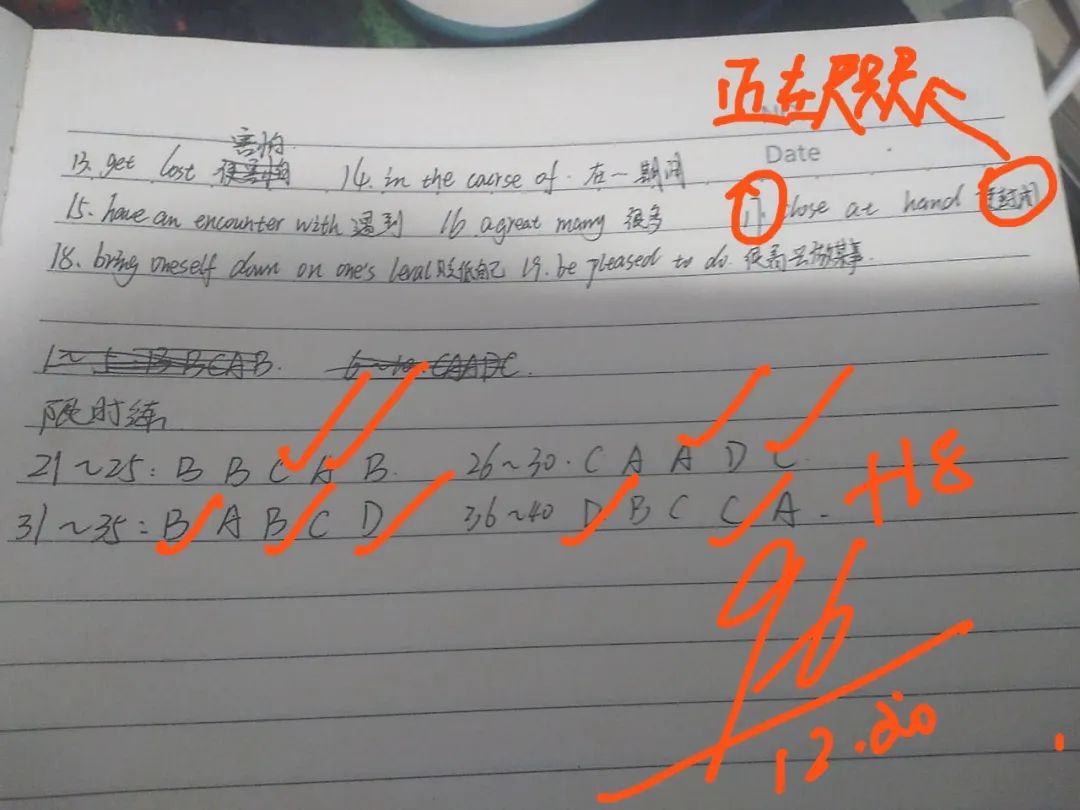 近在咫尺
害怕.
Date
13. get lost 14. in the caurse of. 在一期间
15. have an encounter with 遇到 16. a great many 很多 17. close at hand 封闭
18. bring oneself down on one's leval 贬低自己 19. be pleased to do. 很高兴做某事.
1~5: B B C A B. 6~10. CAADC.
限时练
21~25: B B C A B. 26~30. C A A D C.
31~35: B A B C D 36~40 D B C C A.
+18
96
12.20